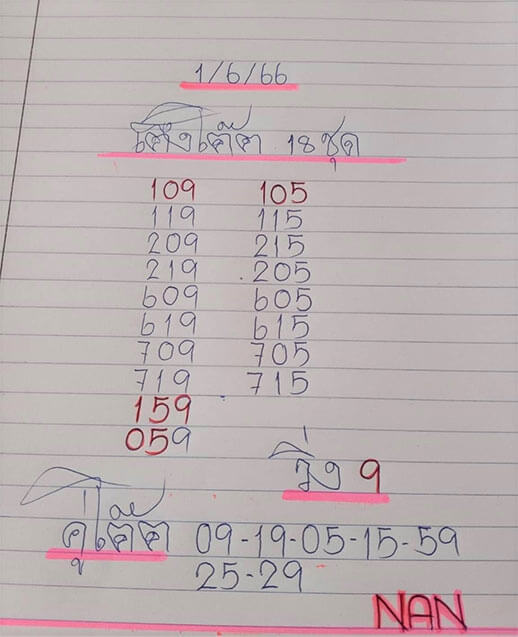 1/6/66
เต็งโต๊ด 18 ชุด
109 105
119 115
209 215
219 205
609 605
619 615
709 705
719 715
159
059
วิ่ง 9
คู่โต๊ด 09-19-05-15-59
25-29
NAN